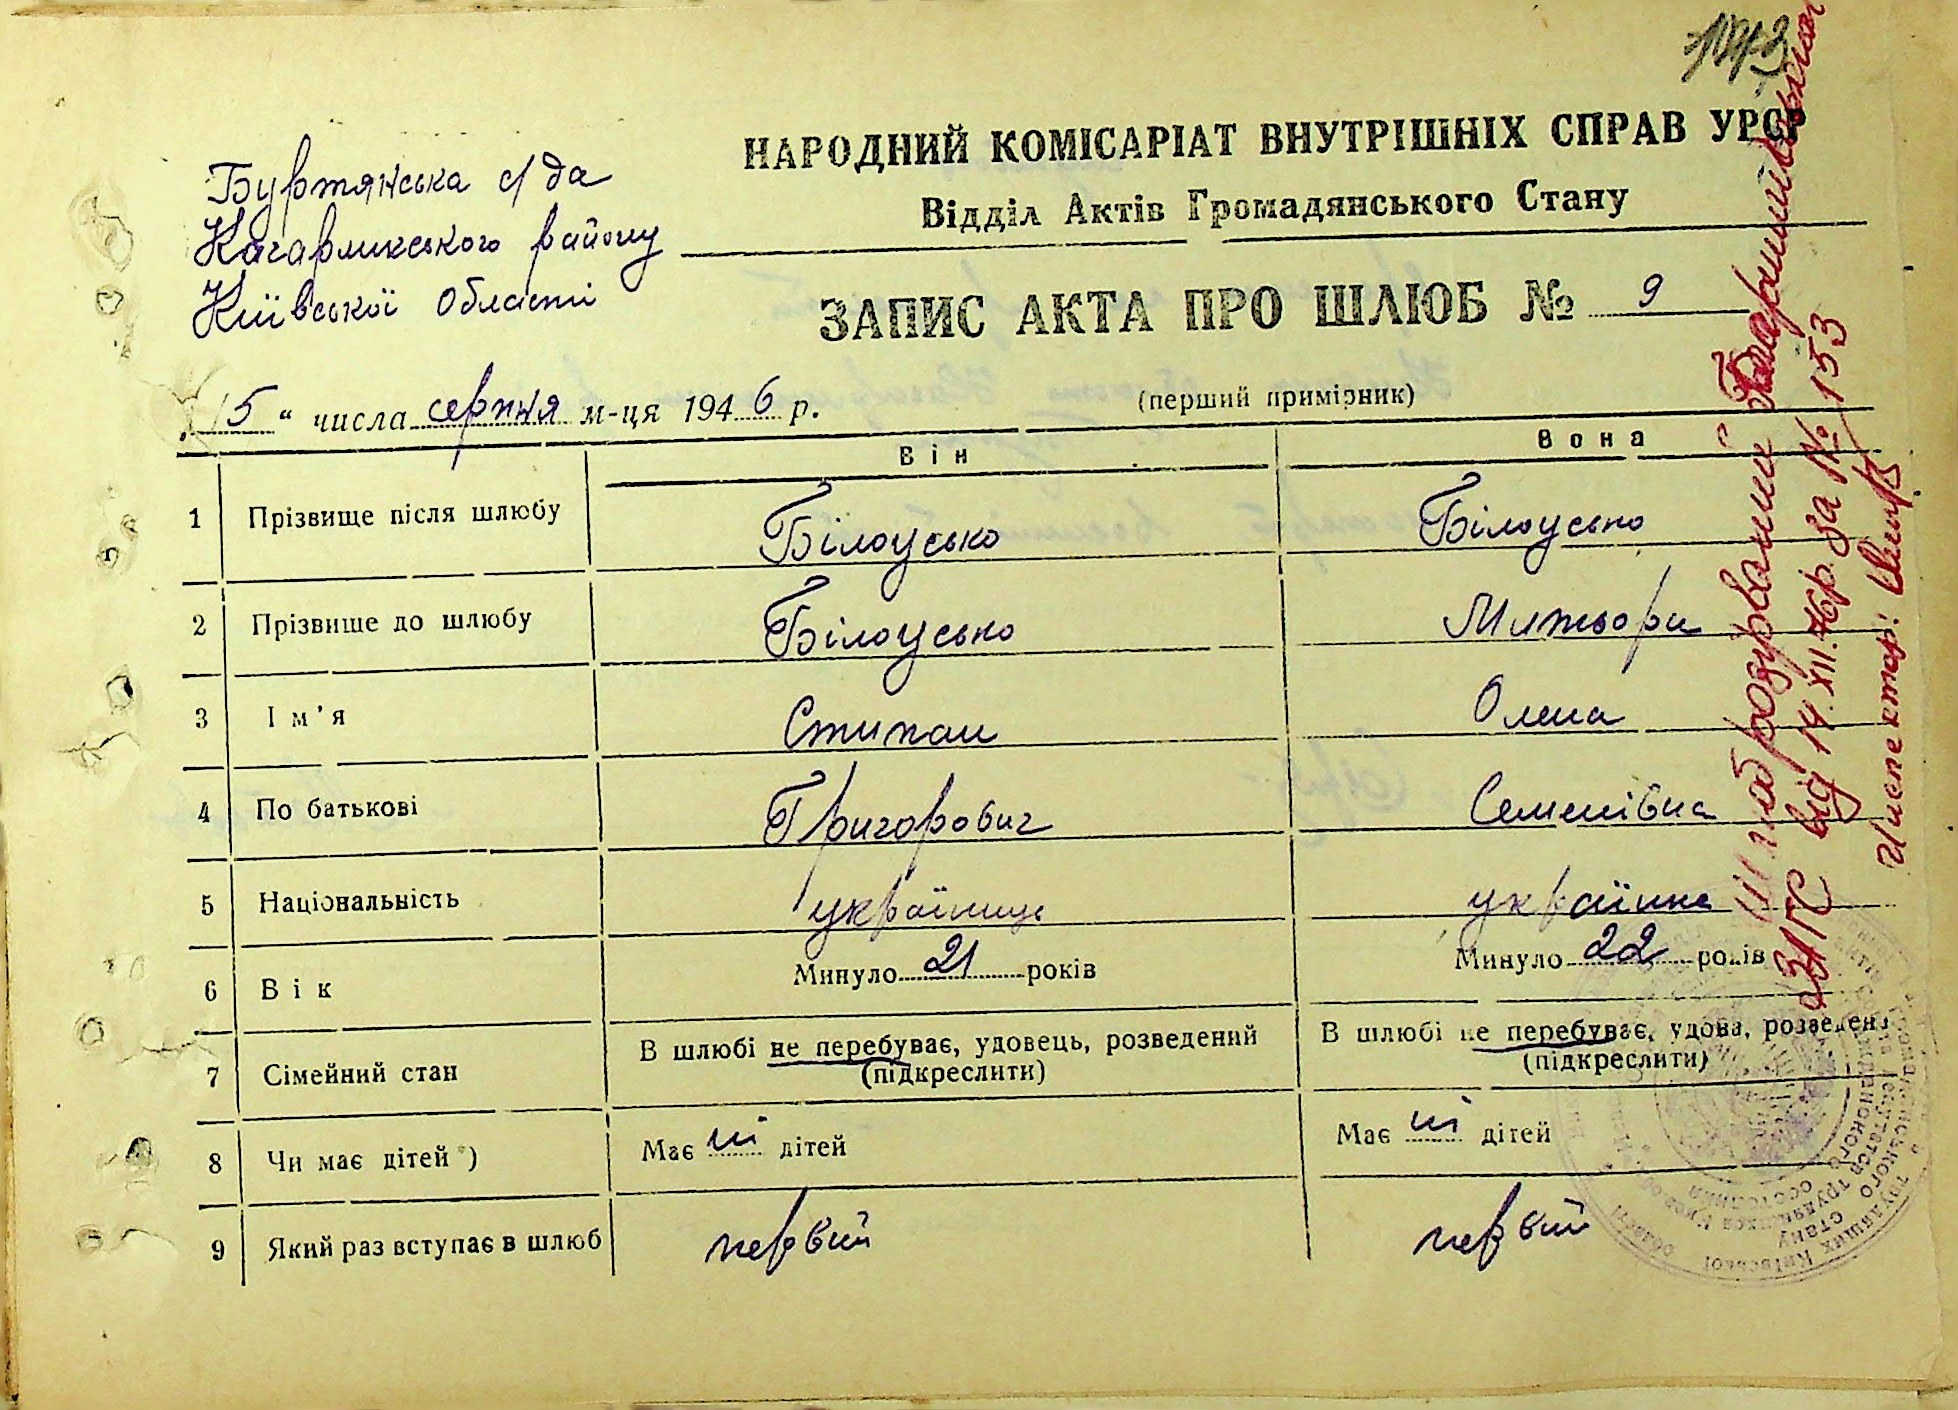 НАРОДНИЙ КОМІСАРІАТ ВНУТРІШНІХ СПРАВ УРСР
Відділ Актів Громадянського Стану
Буртянська с/да
Кагарликського району
Київської області
ЗАПИС АКТА ПРО ШЛЮБ № 9
"15" числа серпня м-ця 1946 р. (перший примірник)
Він Вона
1 Прізвище після шлюбу Білоусько Білоусько
2 Прізвище до шлюбу Білоусько
3 Ім'я Стипан Олена
4 По батькові Григорович Семенівна
5 Національність українць українка
6 Вік Минуло 21 років Минуло 22 років
7 Сімейний стан В шлюбі не перебуває, удовець, розведений (підкреслити) В шлюбі не перебуває, удова, розведена (підкреслити)
8 Чи має дітей *) Має ні дітей Має ні дітей
9 Який раз вступає в шлюб первий первий
Шлюб розірваний
ЗАГС від 14.XII.76р. за № 153
Инспектор: